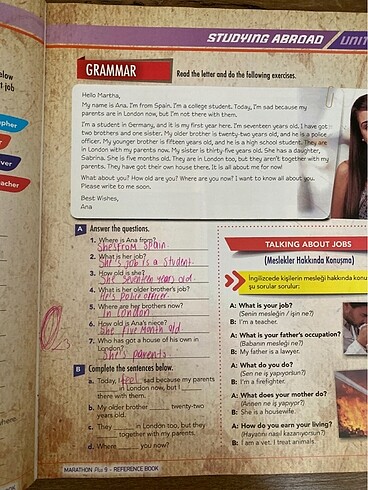 STUDYING ABROAD / UNIT
GRAMMAR
Read the letter and do the following exercises.
Hello Martha,
My name is Ana. I'm from Spain. I'm a college student. Today, I'm sad because my
parents are in London now, but I'm not there with them.
I'm a student in Germany, and it is my first year here. I'm seventeen years old. I have got
two brothers and one sister. My older brother is twenty-two years old, and he is a police
officer. My younger brother is fifteen years old, and he is a high school student. They are
in London with my parents now. My sister is thirty-five years old. She has a daughter,
Sabrina. She is five months old. They are in London too, but they aren't together with my
parents. They have got their own house there. It is all about me for now!
What about you? How old are you? Where are you now? I want to know all about you.
Please write to me soon.
Best Wishes,
Ana
A Answer the questions.
1. Where is Ana from?
She's from Spain.
2. What is her job?
She's job is a student.
3. How old is she?
She seventeen years old.
4. What is her older brother's job?
He's Police officer.
5. Where are her brothers now?
In London
6. How old is Ana's niece?
She five month old.
7. Who has got a house of his own in
London?
She's parents
B Complete the sentences below.
a. Today, I feel sad because my parents
in London now, but I
there with them.
b. My older brother twenty-two
years old.
c. They in London too, but they
together with my parents.
d. Where you now?
TALKING ABOUT JOBS
(Meslekler Hakkında Konuşma)
İngilizcede kişilerin mesleği hakkında konu
şu sorular sorulur:
A: What is your job?
(Senin mesleğin / işin ne?)
B: I'm a teacher.
A: What is your father's occupation?
(Babanın mesleği ne?)
B: My father is a lawyer.
A: What do you do?
(Sen ne iş yapıyorsun?)
B: I'm a firefighter.
A: What does your mother do?
(Annen ne iş yapıyor?)
B: She is a housewife.
A: How do you earn your living?
(Hayatını nasıl kazanıyorsun?)
B: I am a vet. I treat animals.
MARATHON Plus 9 - REFERENCE BOOK